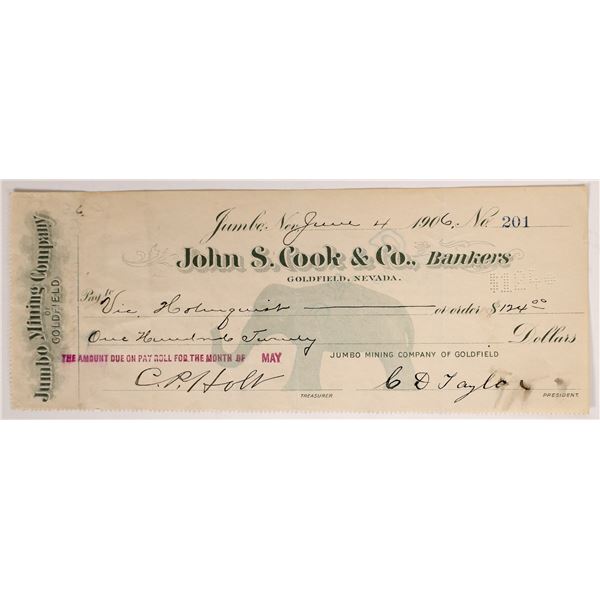 Jumbo Mining Company
OF
GOLDFIELD.
Jumbo, Nev. June 4 1906. No. 201
John S. Cook & Co., Bankers
GOLDFIELD, NEVADA.
$124
Pay to Vic. Holmquist or order $124.00
One Hundred Twenty Dollars
THE AMOUNT DUE ON PAY ROLL FOR THE MONTH OF MAY
JUMBO MINING COMPANY OF GOLDFIELD
C. P. Holt C D Taylor
TREASURER PRESIDENT.